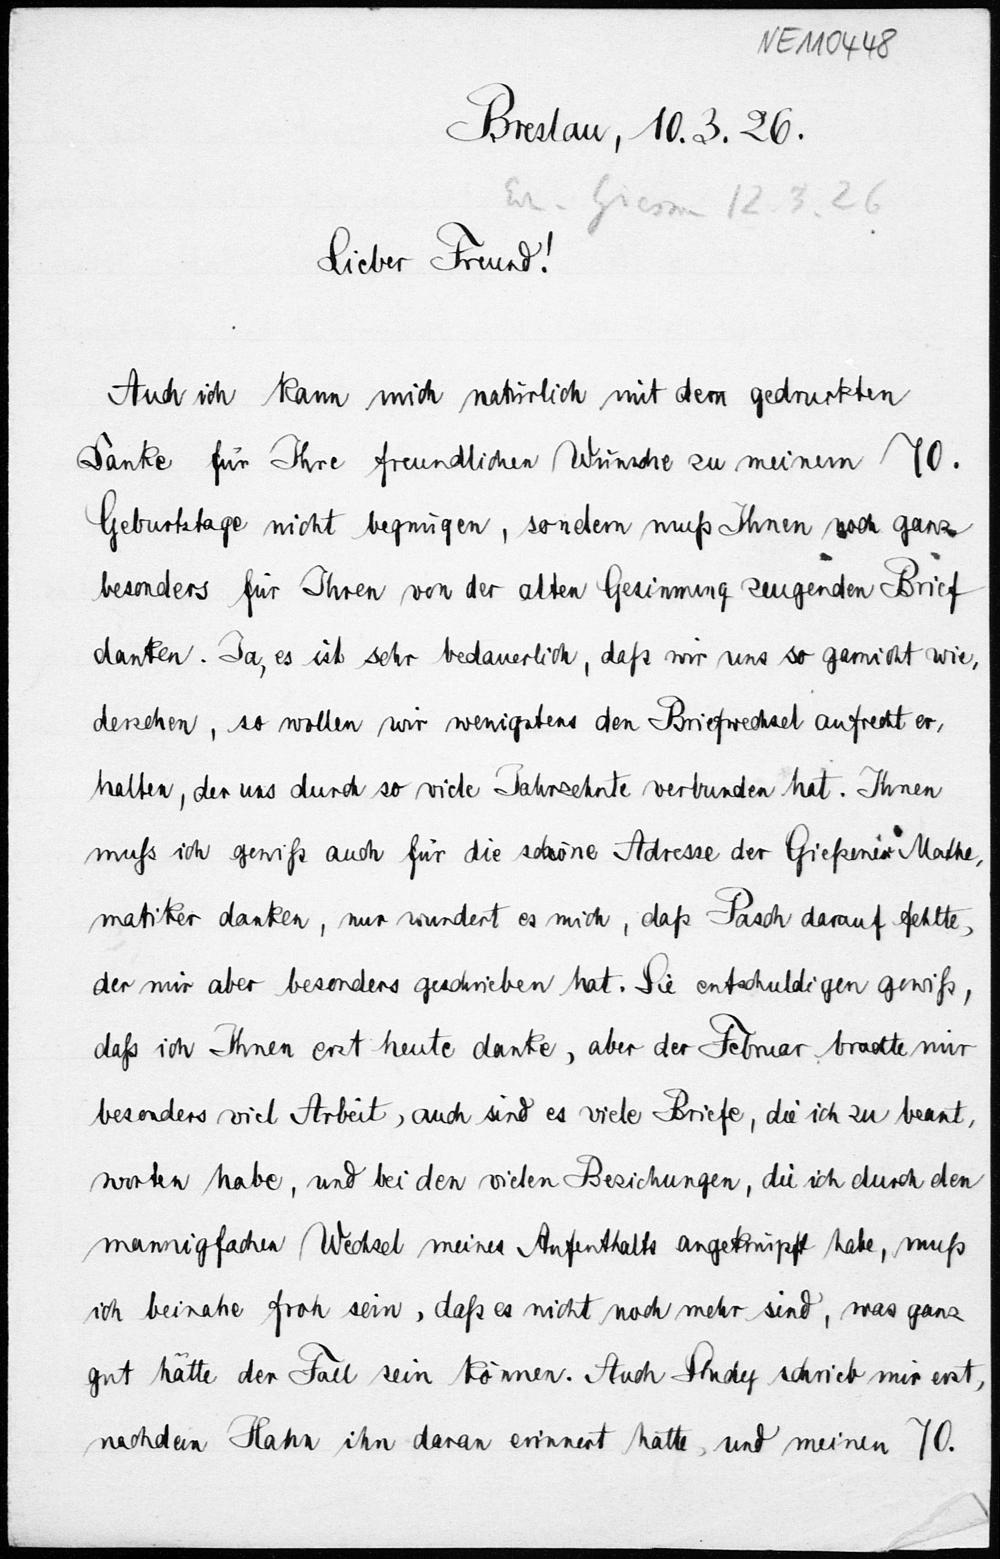 NE110448
Breslau, 10. 3. 26.
Giessen 12. 3. 26
Lieber Freund!
Auch ich kann mich natürlich mit dem gedruckten
Danke für Ihre freundlichen Wünsche zu meinem 70.
Geburtstage nicht begnügen, sondern muß Ihnen noch ganz
besonders für Ihren von der alten Gesinnung zeugenden Brief
danken. Ja, es ist sehr bedauerlich, daß wir uns so garnicht wie,
dersehen, so wollen wir wenigstens den Briefwechsel aufrecht er,
halten, der uns durch so viele Jahrzehnte verbunden hat. Ihnen
muß ich gewiß auch für die schöne Adresse der Gießener Mathe,
matiker danken, nur wundert es mich, daß Pasch darauf fehlte,
der mir aber besonders geschrieben hat. Sie entschuldigen gewiß,
daß ich Ihnen erst heute danke, aber der Februar brachte mir
besonders viel Arbeit, auch sind es viele Briefe, die ich zu beant,
worten habe, und bei den vielen Beziehungen, die ich durch den
mannigfachen Wechsel meines Aufenthalts angeknüpft habe, muß
ich beinahe froh sein, daß es nicht noch mehr sind, was ganz
gut hätte der Fall sein können. Auch Study schrieb mir erst,
nachdem Hahn ihn daran erinnert hatte, und meinen 70.